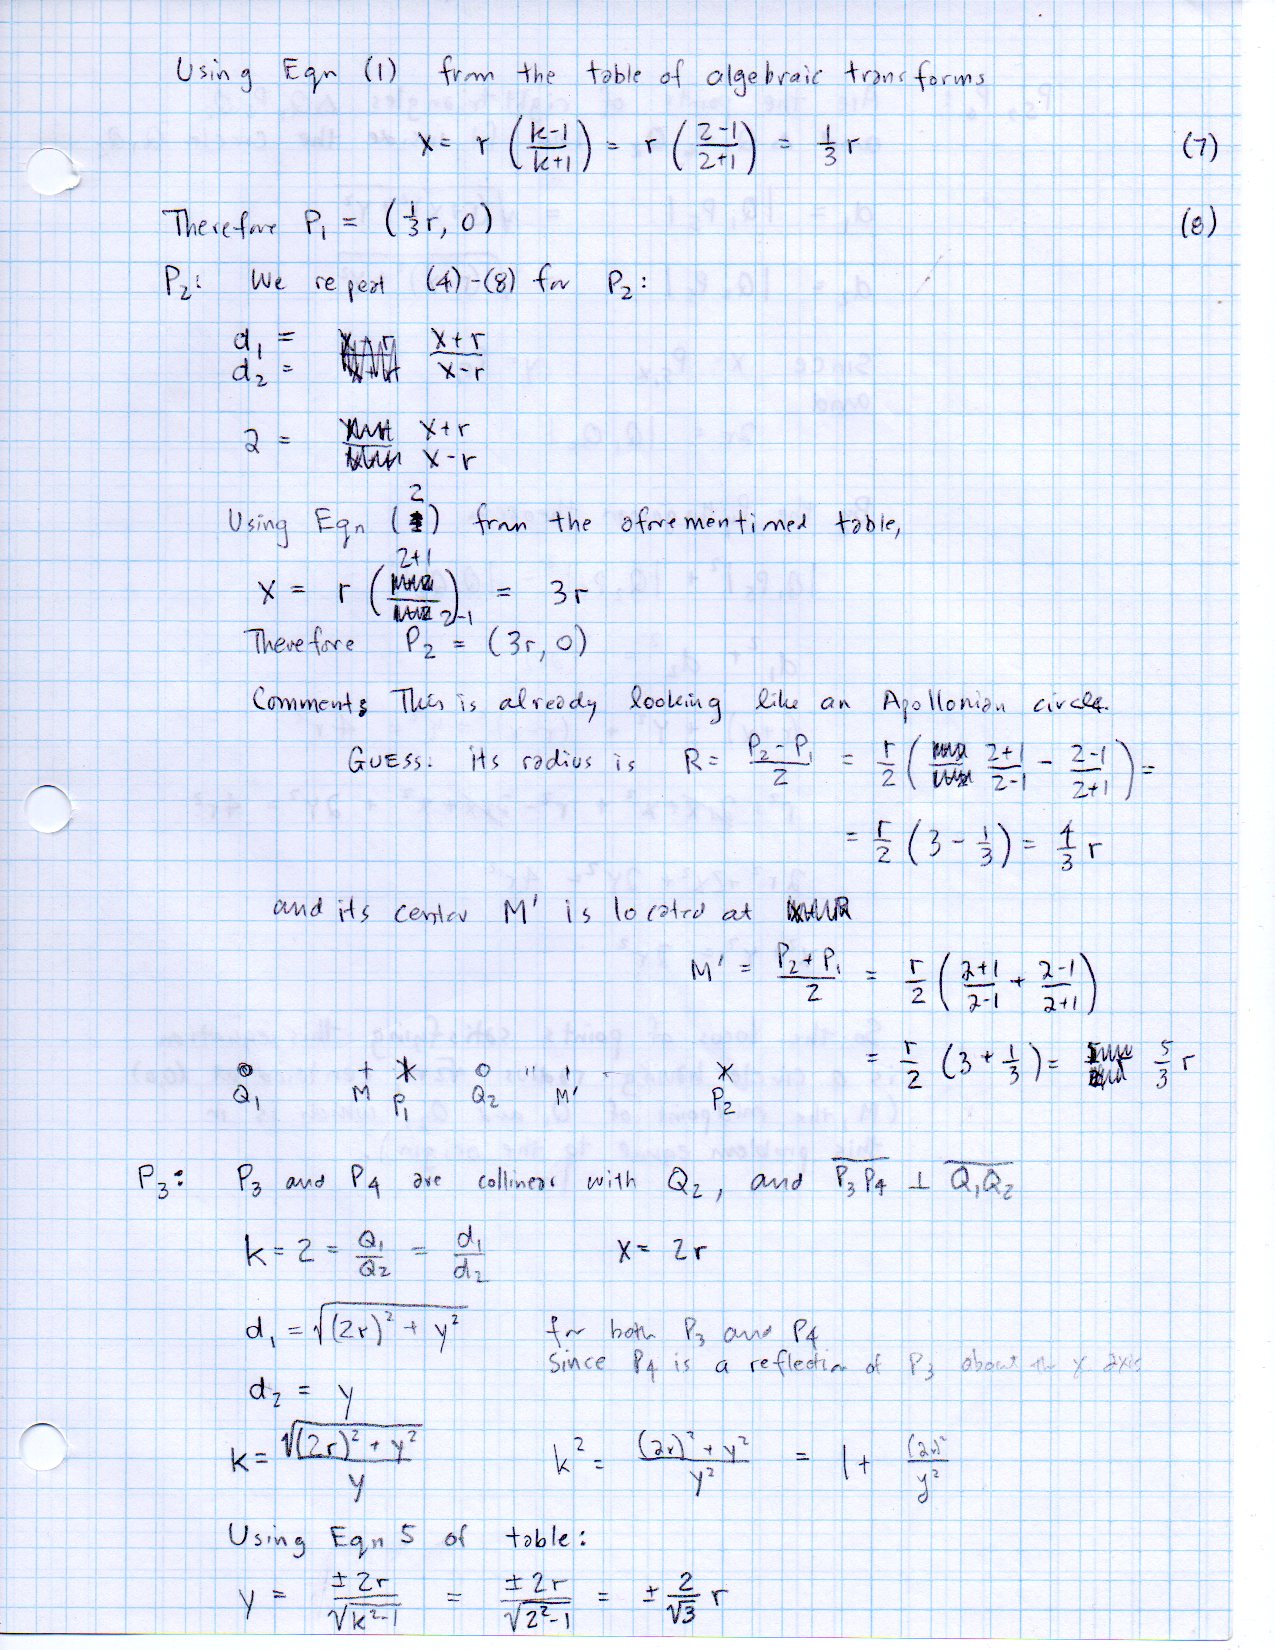 Using Eqn (1) from the table of algebraic transforms
x = r ( k-1 / k+1 ) = r ( 2-1 / 2+1 ) = 1/3 r (7)
Therefore P1 = ( 1/3 r, 0) (8)
P2: We repeat (4)-(8) for P2:
d1 / d2 = x+r / x-r
2 = x+r / x-r
Using Eqn (2) from the aforementioned table,
x = r ( 2+1 / 2-1 ) = 3r
Therefore P2 = (3r, 0)
Comment: This is already looking like an Apollonian circle.
GUESS: its radius is R = P2 - P1 / 2 = r/2 ( 2+1 / 2-1 - 2-1 / 2+1 ) =
= r/2 ( 3 - 1/3 ) = 4/3 r
and its center M' is located at
M' = P2 + P1 / 2 = r/2 ( 2+1 / 2-1 + 2-1 / 2+1 )
= r/2 ( 3 + 1/3 ) = 5/3 r
Q1 M P1 Q2 M' P2
P3: P3 and P4 are collinear with Q2, and P3P4 ⊥ Q1Q2
k = 2 = Q1/Q2 = d1/d2 x = 2r
d1 = √((2r)² + y²) for both P3 and P4
Since P4 is a reflection of P3 about the x axis
d2 = y
k = √((2r)² + y²) / y k² = (2r)² + y² / y² = 1 + (2r)² / y²
Using Eqn 5 of table:
y = ±2r / √(k²-1) = ±2r / √(2²-1) = ± 2/√3 r